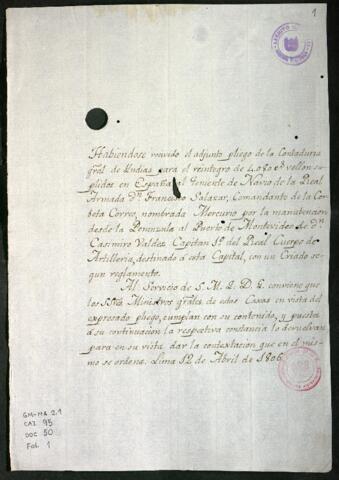 1
Habiendose venido el adjunto pliego de la Contaduria
gral de Yndias para el reintegro de 4.080 rs vellon su-
plidos en España al Teniente de Navio de la Real
Armada Dn Francisco Salazar, Comandante de la Cor-
beta Correo, nombrada Mercurio por la manutencion
desde la Peninzula al Puerto de Montevideo de Dn
Casimiro Valdez Capitan 1º del Real Cuerpo de
Artilleria, destinado á esta Capital, con un Criado se-
gun reglamento.
Al Servicio de S. M. Q. D. G. conviene que
los Sres Ministros grales de estas Caxas en vista del
expresado pliego, cumplan con su contenido, y puesta
á su continuacion la respectiva constancia lo devuelvan
para en su vista dar la contextacion que en el mis-
mo se ordena. Lima 12 de Abril de 1806
GM-MA 2.1
CAJ. 95
DOC 50
Fol. 1